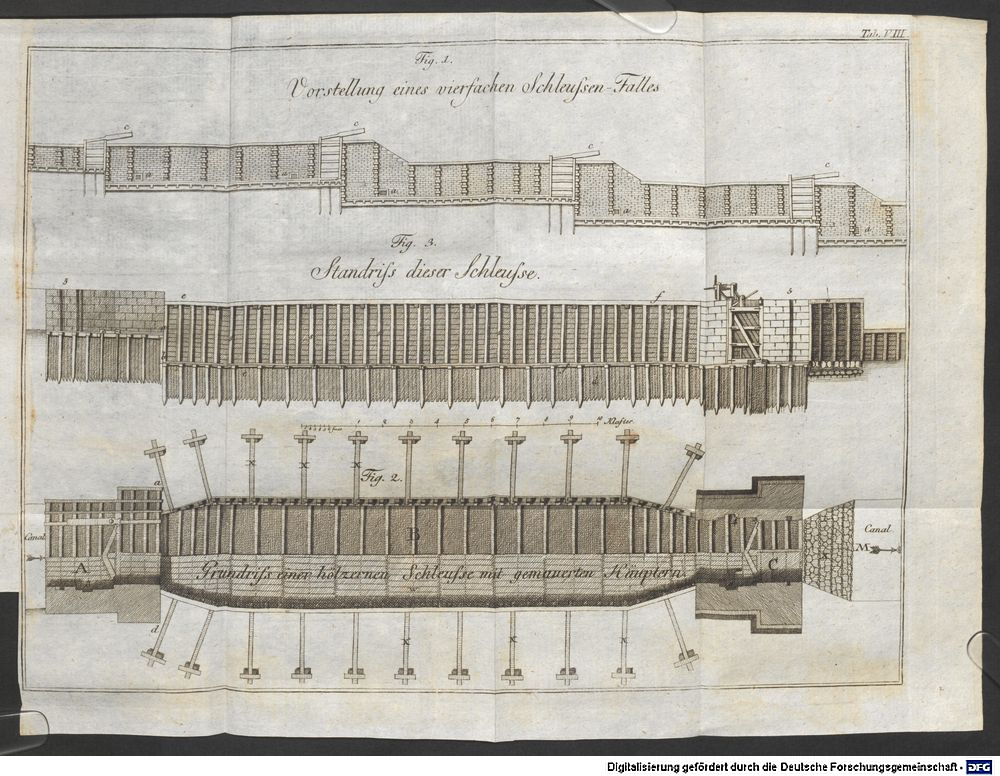 Tab. VIII
Fig. 1.
Vorstellung eines vierfachen Schleussen-Falles
c
c
c
c
a
a
a
a
Fig. 3.
Standriss dieser Schleusse.
3
e
f
s
1 2 3 4 5 6 7 8 9 10 Klafter
Fig. 2.
a
x x x
Canal
B
Canal
M
A
C
Grundriss einer hölzernen Schleusse mit gemauerten Häuptern.
w
d
x x x
Digitalisierung gefördert durch die Deutsche Forschungsgemeinschaft - DFG